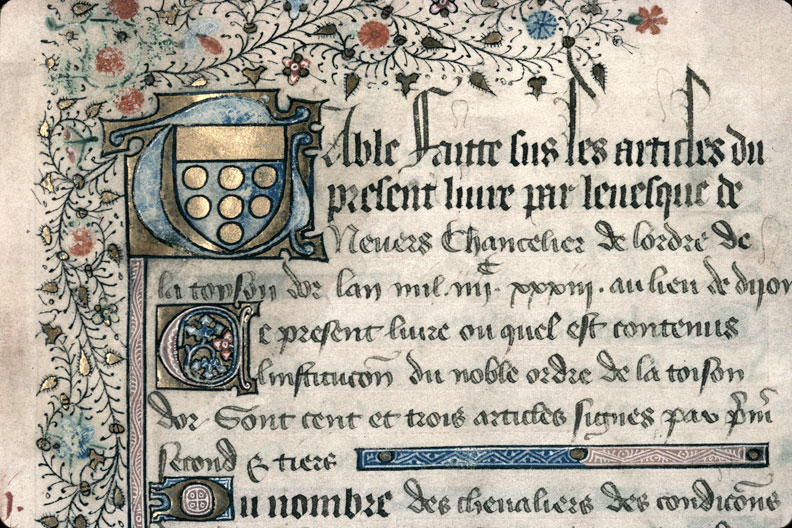 Table faitte sus les articles du
present livre par levesque de
Nevers Chancelier de lordre de
la toyson dor lan mil. iiiiᶜ. xxxiii. au lieu de dijon
Ce present livre ou quel est contenus
linstitucon du noble ordre de la toison
dor. Sont cent et trois articles signes par pm̄
second & tiers
Du nombre des chevaliers des condicons